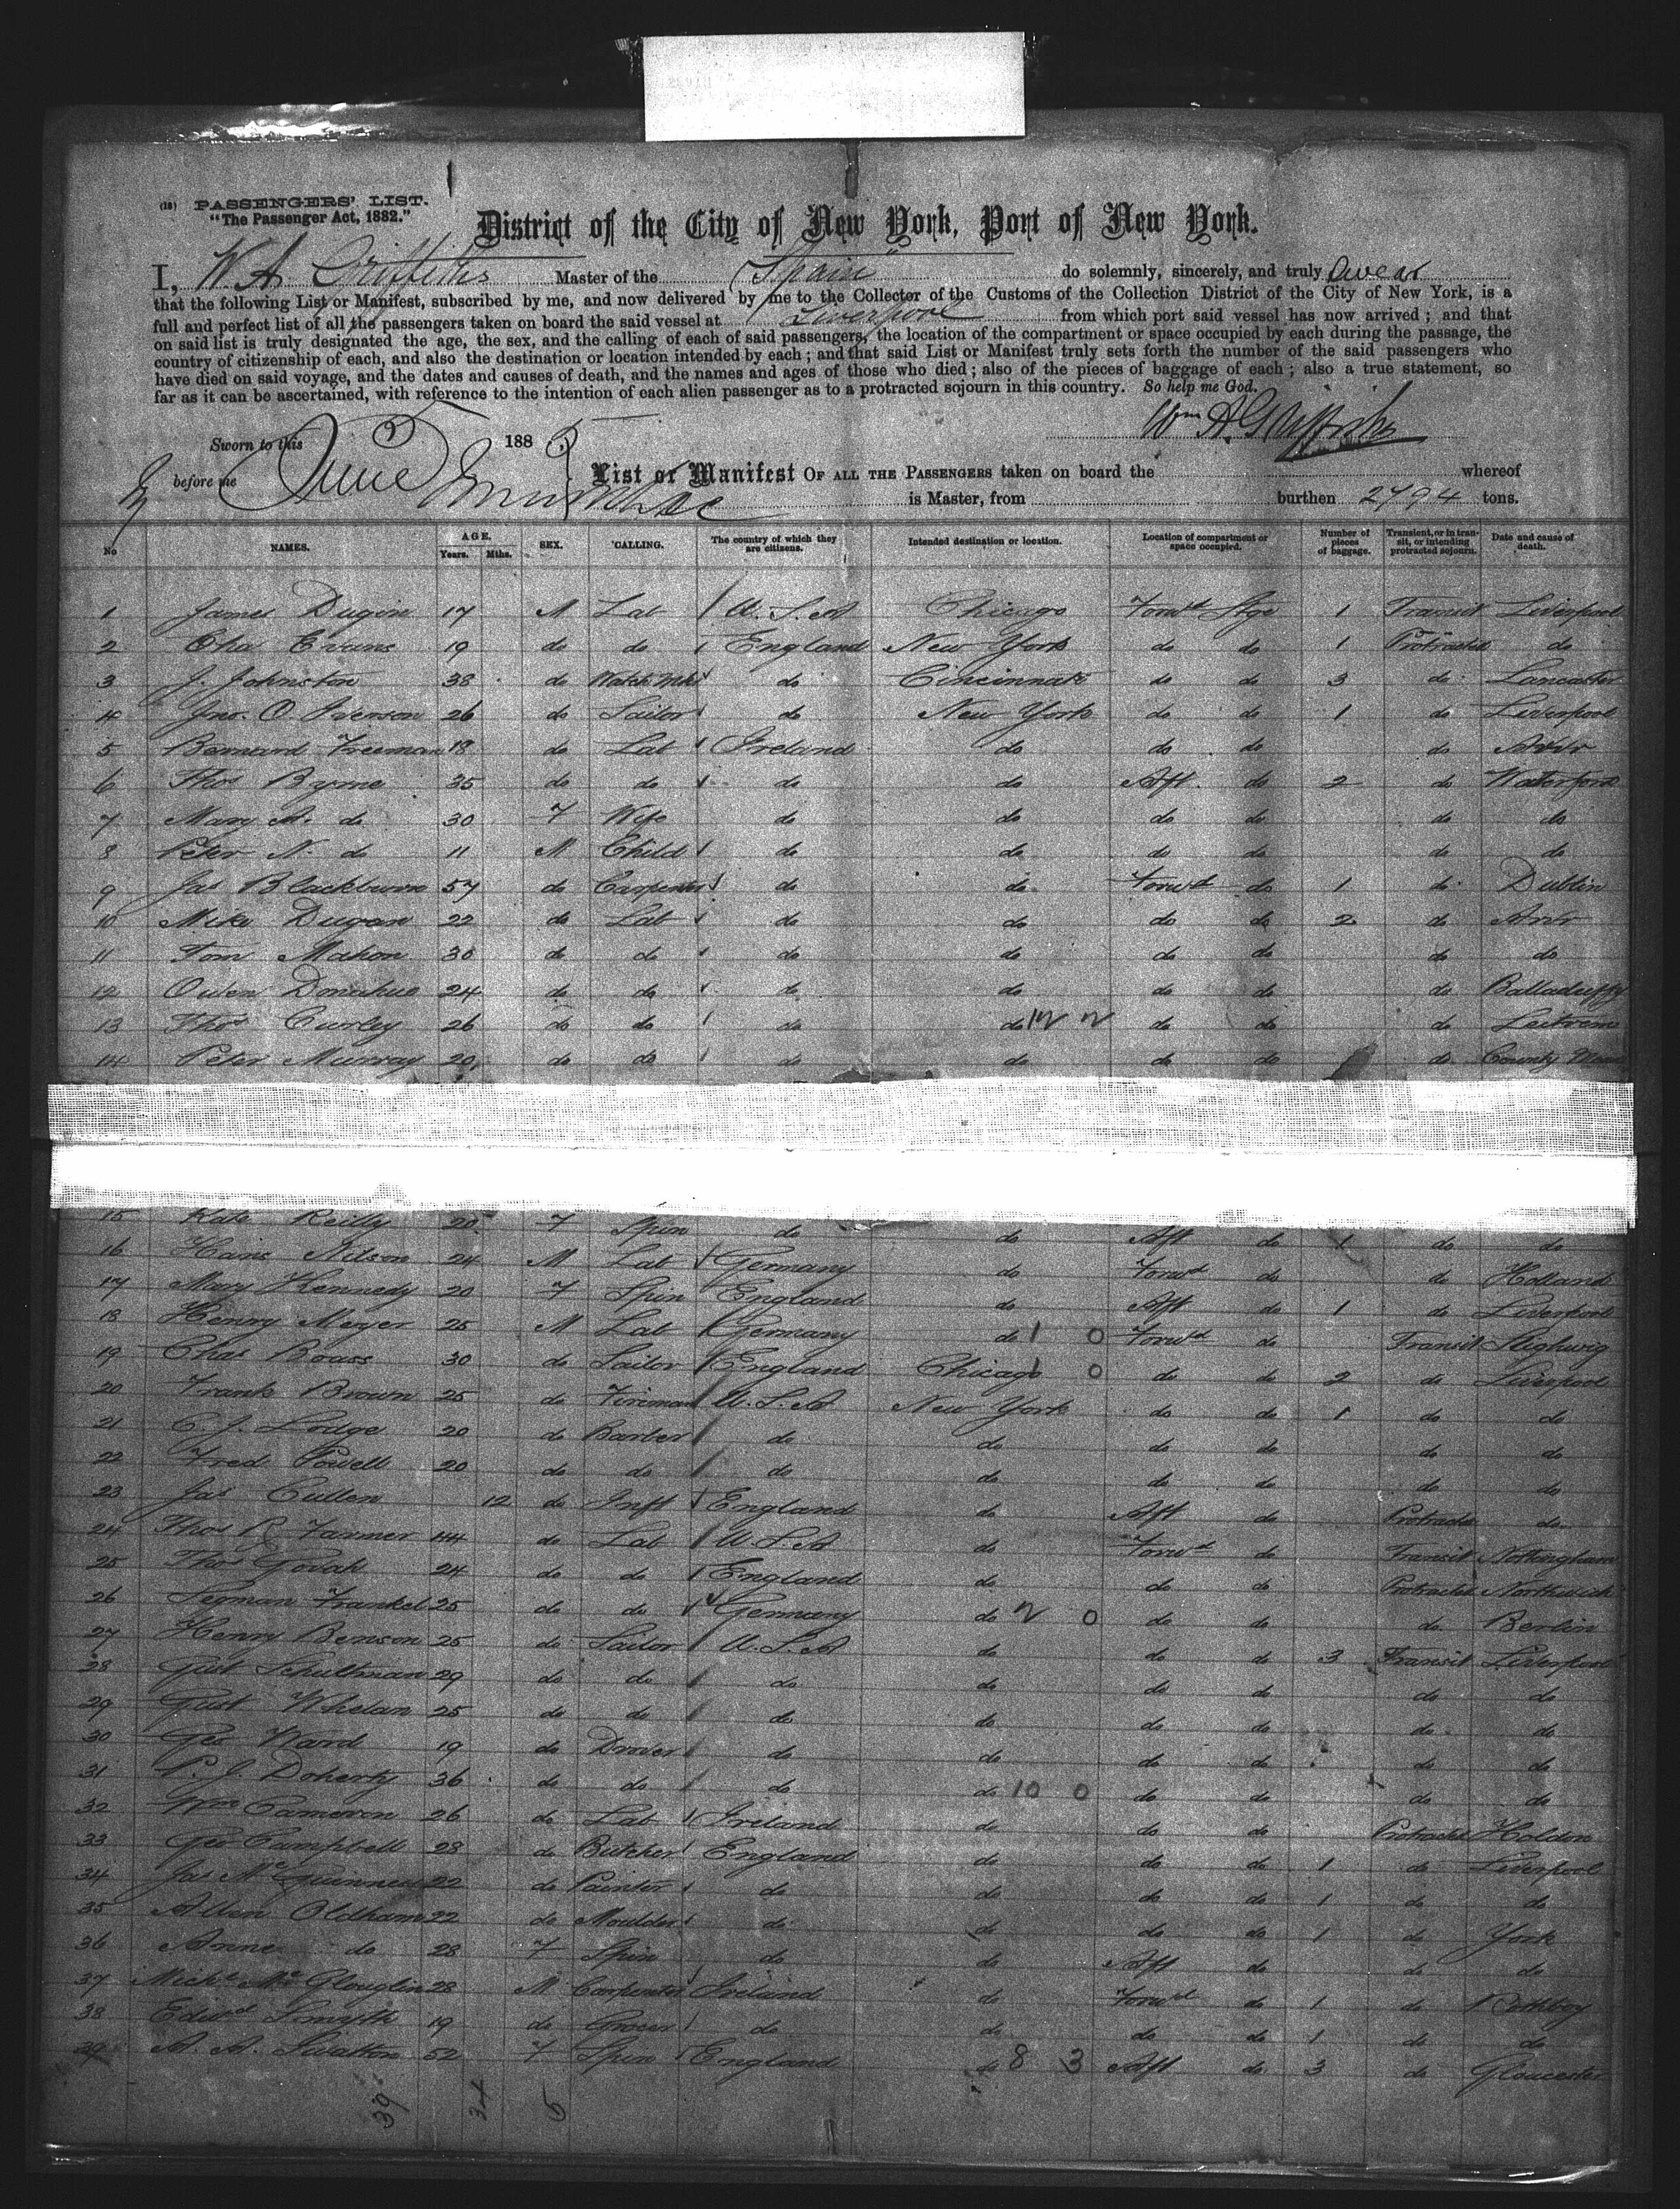 (18) PASSENGERS' LIST.
"The Passenger Act, 1882."
District of the City of New York, Port of New York.
I, W. A. Griffiths Master of the "Spain" do solemnly, sincerely, and truly swear
that the following List or Manifest, subscribed by me, and now delivered by me to the Collector of the Customs of the Collection District of the City of New York, is a
full and perfect list of all the passengers taken on board the said vessel at Liverpool from which port said vessel has now arrived; and that
on said list is truly designated the age, the sex, and the calling of each of said passengers, the location of the compartment or space occupied by each during the passage, the
country of citizenship of each, and also the destination or location intended by each; and that said List or Manifest truly sets forth the number of the said passengers who
have died on said voyage, and the dates and causes of death, and the names and ages of those who died; also of the pieces of baggage of each; also a true statement, so
far as it can be ascertained, with reference to the intention of each alien passenger as to a protracted sojourn in this country. So help me God.
Wm A. Griffiths
Sworn to this 5 June 1885
before me
List or Manifest OF ALL THE PASSENGERS taken on board the whereof
is Master, from burthen 2794 tons.
No NAMES. AGE. Years. Mths. SEX. CALLING. The country of which they are citizens. Intended destination or location. Location of compartment or space occupied. Number of pieces of baggage. Transient, or in transit, or intending protracted sojourn. Date and cause of death.
1 James Dugin 17 M Lab U.S.A Chicago Forwd Stge 1 Transit Liverpool
2 Chas Evans 19 do do England New York do do 1 Protracted do
3 J. Johnston 38 do Watch Mkr do Cincinnati do do 3 do Lancaster
4 Jno. O. Iverson 26 do Sailor do New York do do 1 do Liverpool
5 Bernard Freeman 18 do Lab Ireland do do do do
6 Thos Byrne 35 do do do do Aft do 2 do Waterford
7 Mary A. do 30 F Wife do do do do do do
8 Peter N. do 11 M Child do do do do do do
9 Jas Blackburn 57 do Carpenter do do Forwd do 1 do Dublin
10 Mike Dugan 22 do Lab do do do do 2 do
11 Tom Mahon 30 do do do do do do do do
12 Owen Donahue 24 do do do do do do do
13 Thos Curley 26 do do do do do do do Leitrim
14 Peter Murray 20 do do do do do do do County
15 Kate Reilly 20 F Spin do do Aft do 1 do do
16 Hans Nilson 24 M Lab Germany do Forwd do do Holland
17 Mary Kennedy 20 F Spin England do Aft do 1 do Liverpool
18 Henry Meyer 25 M Lab Germany do 1 0 Forwd do Transit
19 Chas Boass 30 do Sailor England Chicago 1 0 do do 2 do Liverpool
20 Frank Brown 25 do Fireman U.S.A New York do do 1 do do
21 C. J. Lodge 20 do Barber do do do do do do
22 Fred Powell 20 do do do do do do do do
23 Jas Cullen 12 do Inft England do Aft do Protracted do
24 Thos R. Farmer 44 do Lab U.S.A do Forwd do Transit Nottingham
25 Thos 24 do do England do do do Protracted Northwich
26 Segman Frankel 25 do do Germany do 2 0 do do do Berlin
27 Henry Benson 25 do Sailor U.S.A do do do 3 Transit Liverpool
28 Gust Schultman 29 do do do do do do do do
29 Gust Whelan 25 do do do do do do do do
30 Geo Ward 19 do Drover do do do do do do
31 P. J. Doherty 36 do do do do 10 0 do do do do
32 Wm Cameron 26 do Lab Ireland do do do Protracted Holdon
33 Geo Campbell 28 do Butcher England do do do 1 do Liverpool
34 Jas McGuinness 22 do Painter do do do do 1 do do
35 Allen Oldham 22 do Moulder do do do do 1 do York
36 Anne do 28 F Spin do do Aft do do do
37 Michl McGloughlin 28 M Carpenter Ireland do Forwd do 1 do
38 Edwd Smyth 19 do Grocer do do do do 1 do do
39 A. A. Swatton 52 F Spin England do 8 3 Aft do 3 do Gloucester
39 34 5